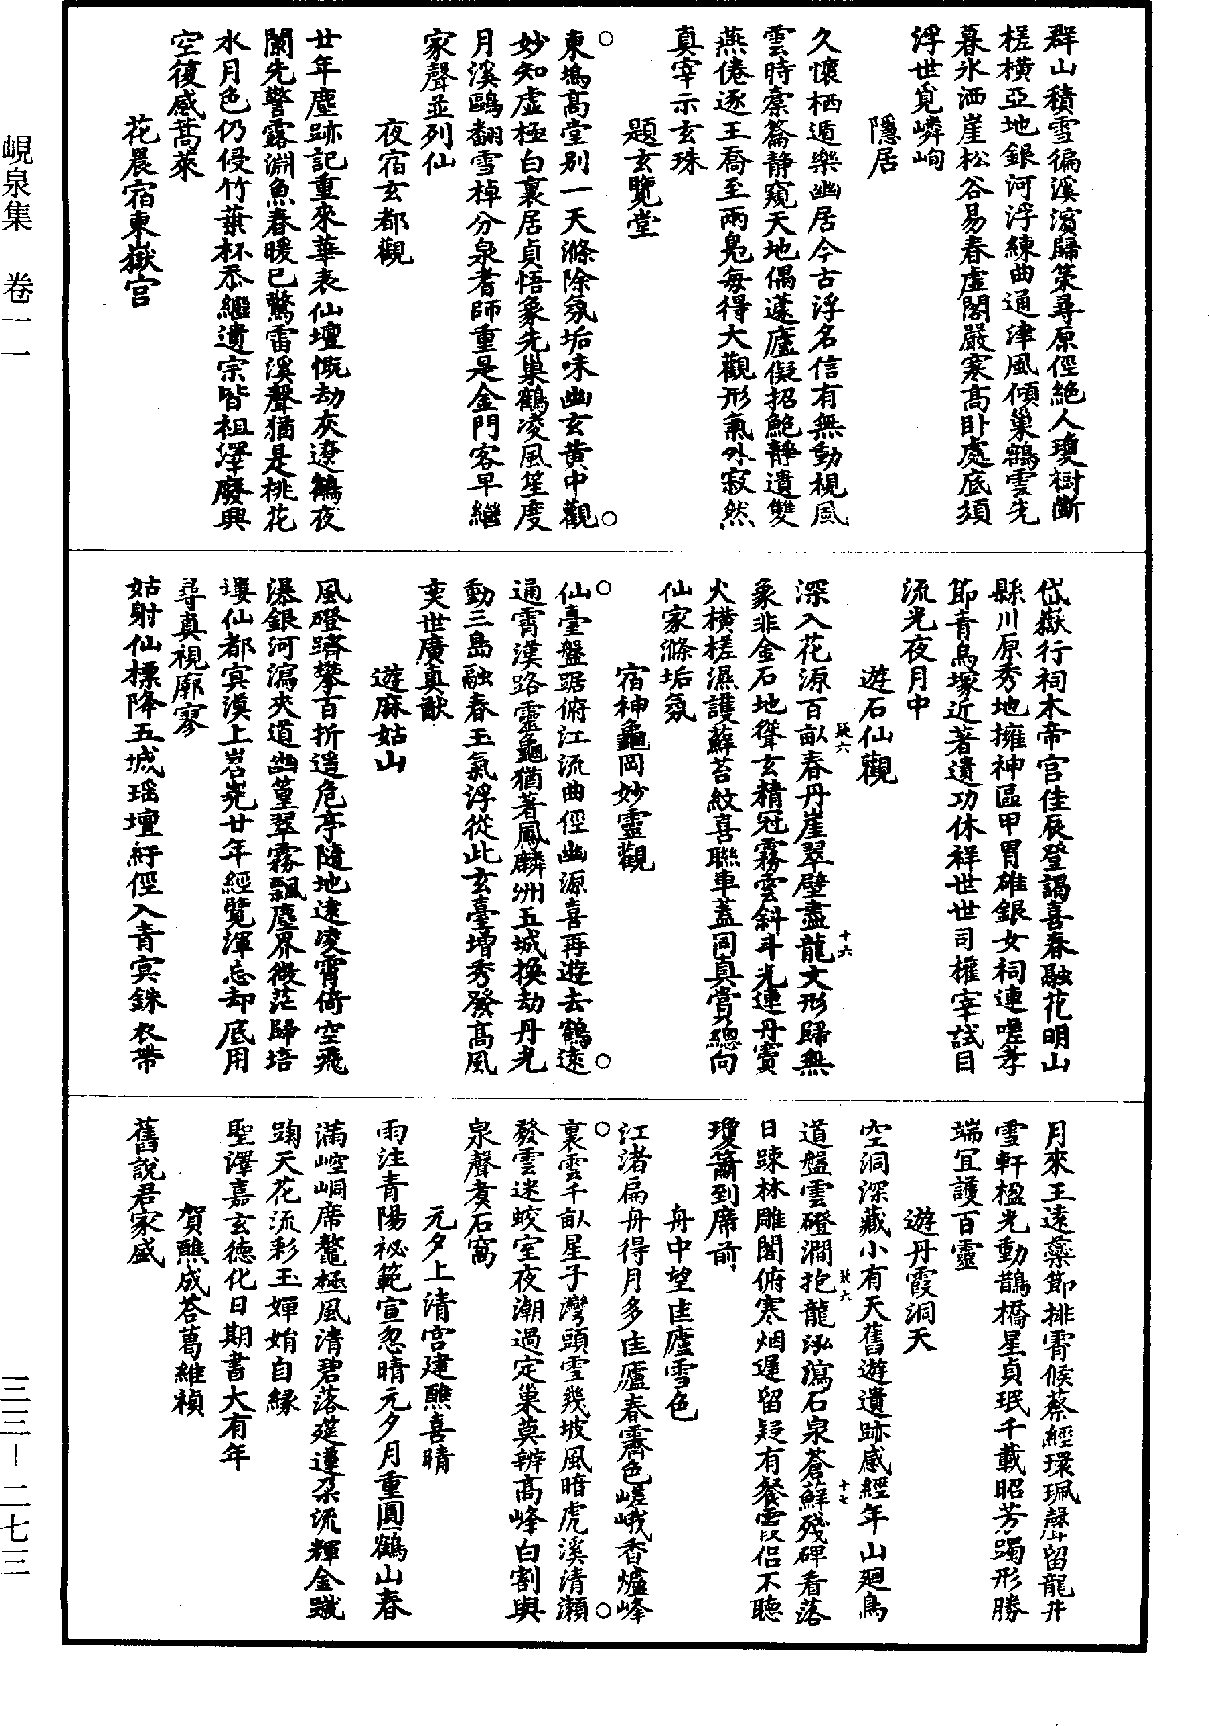 峴泉集　卷一一
三三—二七三
群山積雪徧溪濱歸策尋原徑絕人瓊樹斷
槎橫亞地銀河浮練曲通津風傾巢鶴雲先
暮氷洒崖松谷易春虛閣嚴寒高卧處底須
浮世覓嶙峋
隱居
久懷栖遁樂幽居今古浮名信有無動梘風
雲時寨籥靜窺天地偶蘧廬儗招鮑靜遺雙
燕倦逐王喬至兩鳧每得大觀形氣外寂然
真宰示玄珠
題玄覽堂
東塢高堂别一天滌除氛垢味幽玄黃中觀
妙知虛極白裏居貞悟象先巢鶴凌風笙度
月溪鷗翻雪棹分泉耆師重是金門客早繼
家聲並列仙
夜宿玄都觀
廿年塵跡記重來華表仙壇慨劫灰遼鶴夜
闌先警露淵魚春暖已驚雷溪聲猶是桃花
水月色仍侵竹葉杯忝繼遺宗皆祖澤廢興
空復感蒿萊
花晨宿東嶽宫
岱嶽行祠木帝宫佳辰登謁喜春融花明山
縣川原秀地擁神區甲胃雄銀女祠連嗟孝
節青烏塚近著遺功休祥世世司權宰試目
流光夜月中
遊石仙觀
深入花源百畝春丹崖翠壁盡龍文形歸無
象非金石地聳玄精冠霧雲斜斗光連丹竇
火橫槎濕護蘚苔紋喜聯車蓋同真賞總向
仙家滌垢氛
宿神龜岡妙靈觀
仙臺盤踞俯江流曲徑幽源喜再遊去鶴遠
通霄漢路靈龜猶著鳳麟洲五城換劫丹光
動三島融春玉氣浮從此玄臺增秀發高風
奕世廣真猷
遊麻姑山
風磴躋攀百折遥危亭隨地逺凌霄倚空飛
瀑銀河瀉夾道幽篁翠霧飄塵界微茫歸培
塿仙都㝠漠上岧嶤廿年經覽渾忘却底用
尋真視廓寥
姑射仙標降五城瑶壇紆徑入青㝠銖衣帶
月來王遠藥節排霄候蔡經環珮聲留龍井
雪軒楹光動鵲橋星貞珉千載昭芳躅形勝
端宜護百靈
遊丹霞洞天
空洞深藏小有天舊遊遺跡感經年山廻鳥
道盤雲磴澗抱龍泓瀉石泉蒼蘚殘碑看落
日踈林雕閣俯寒烟遲留疑有餐霞侶不聴
瓊簫到席前
舟中望匡廬雪色
江渚扁舟得月多匡廬春霽色嵯峨香爐峰
裏雲千畝星子灣頭雪幾坡風暗虎溪清瀨
發雲迷蛟室夜潮過定巢莫辨高峰白割與
泉聲煑石窩
元夕上清宫建醮喜晴
雨注青陽祕範宣忽晴元夕月重圓鶴山春
滿崆峒席鰲極風清碧落筵蓮朶流輝金蹴
踘天花流彩玉嬋娟自緣
聖澤嘉玄德化日期書大有年
賀醮成荅葛維禎
舊說君家盛
疑六
十六
疑六
十七